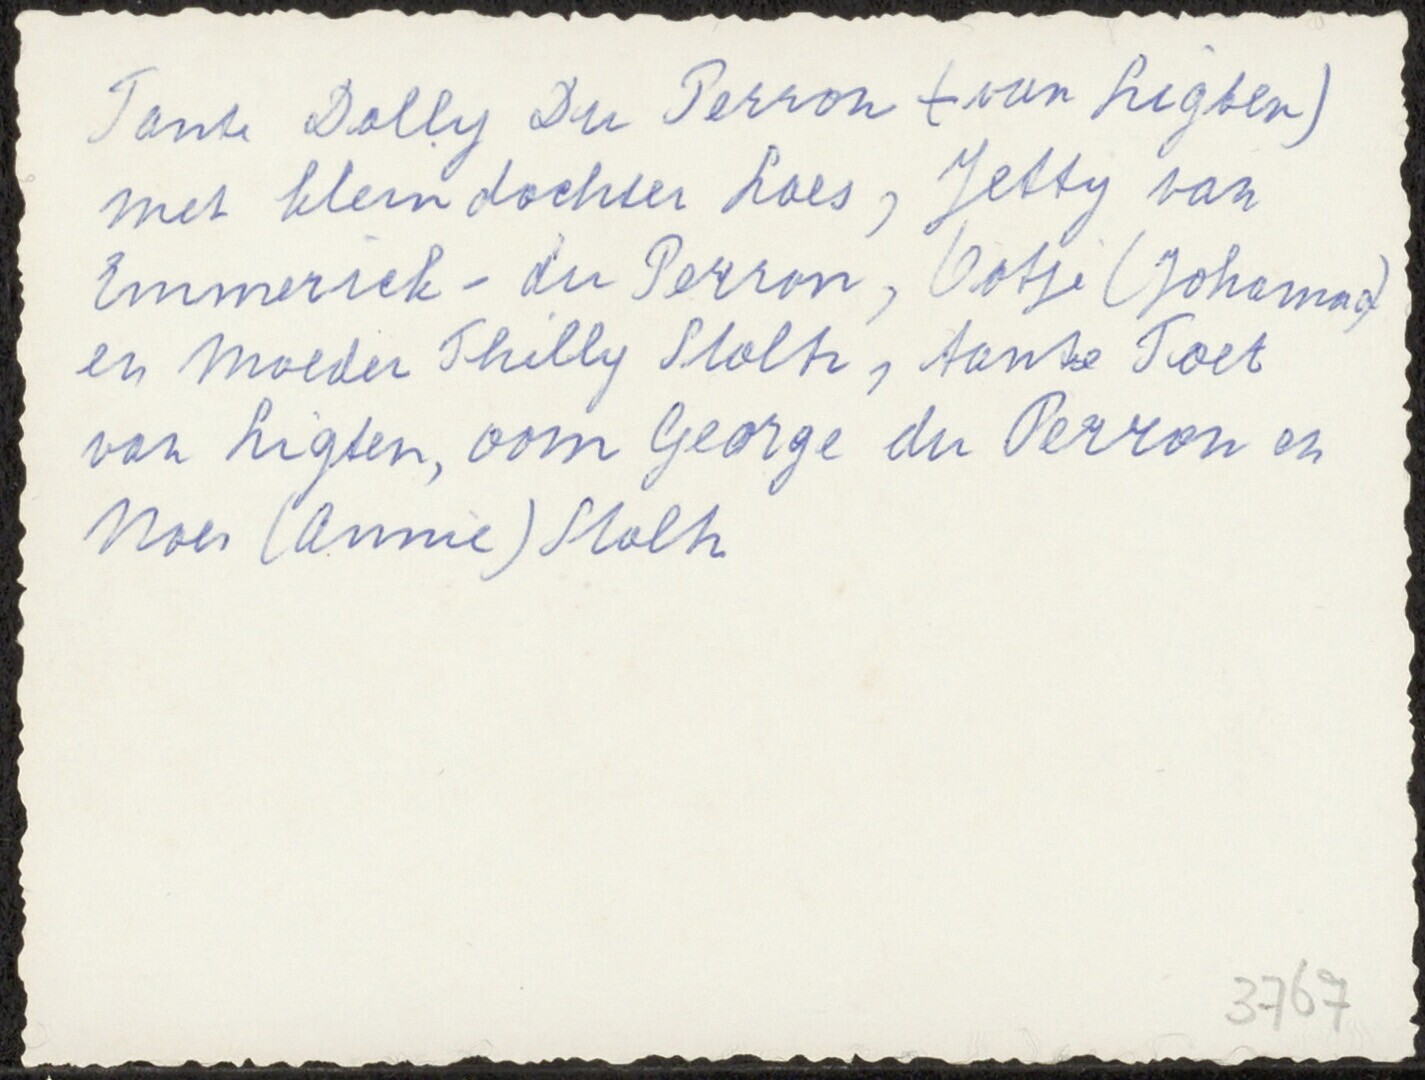 Tante Dolly Du Perron (-van Ligten)
met kleindochter Loes, Jetty van
Emmerick - du Perron, (Johanna)
en Moeder Thilly Stolk, tante Toet
van Ligten, oom George du Perron en
Noes (Annie) Stolk
3767